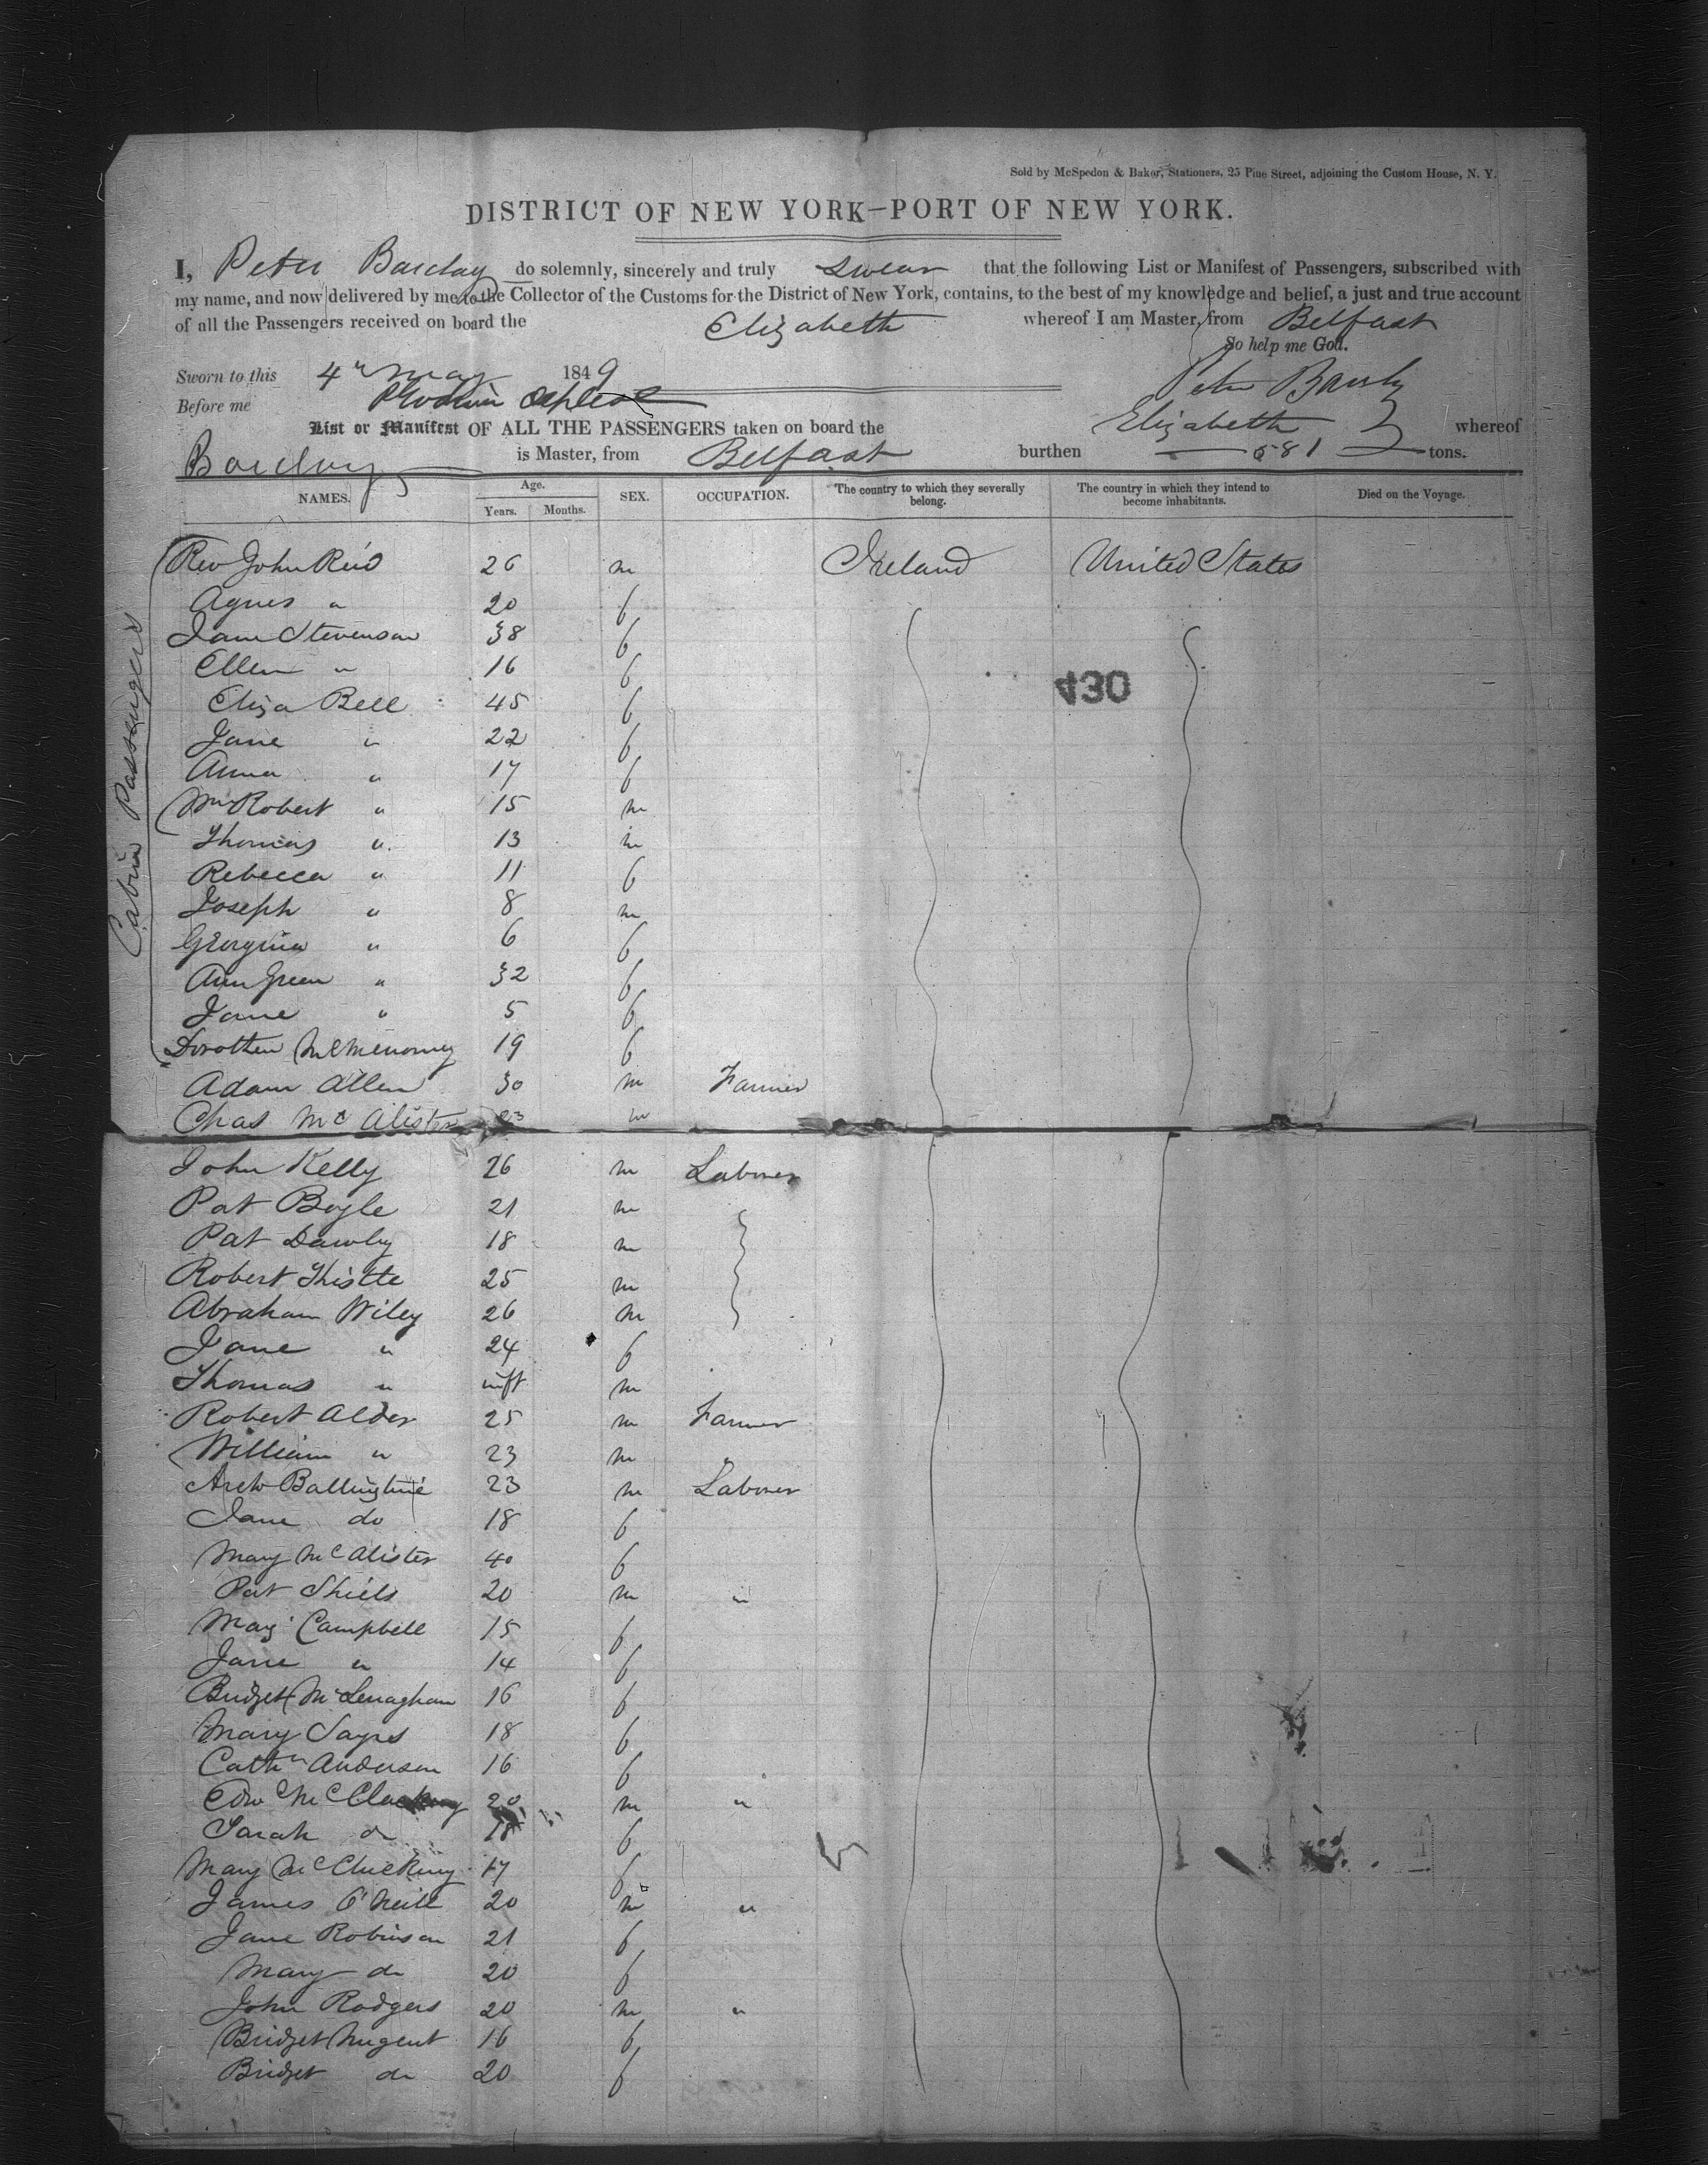 Sold by McSpedon & Baker, Stationers, 25 Pine Street, adjoining the Custom House, N. Y.
DISTRICT OF NEW YORK—PORT OF NEW YORK.
I, Peter Barclay do solemnly, sincerely and truly swear that the following List or Manifest of Passengers, subscribed with
my name, and now delivered by me to the Collector of the Customs for the District of New York, contains, to the best of my knowledge and belief, a just and true account
of all the Passengers received on board the Elizabeth whereof I am Master, from Belfast
So help me God.
Sworn to this 4th May 1849
Before me
Peter Barclay
List or Manifest OF ALL THE PASSENGERS taken on board the Elizabeth whereof
Barclay is Master, from Belfast burthen 581 tons.
NAMES. Age. Years. Months. SEX. OCCUPATION. The country to which they severally belong. The country in which they intend to become inhabitants. Died on the Voyage.
Cabin Passengers
Rev John Reid 26 m Ireland United States
Agnes " 20 f
Jane Stevenson 38 f
Ellen " 16 f
430
Eliza Bell 45 f
Jane " 22 f
Anna " 17 f
Wm Robert " 15 m
Thomas " 13 m
Rebecca " 11 f
Joseph " 8 m
Georgina " 6 f
Ann Green " 32 f
Jane " 5 f
Dorothea McMenomy 19 f
Adam Allen 30 m Farmer
Chas McAlister 23 m
John Kelly 26 m Laborer
Pat Boyle 21 m
Pat Dawly 18 m
Robert Thistle 25 m
Abraham Wiley 26 m
Jane " 24 f
Thomas " inft m
Robert Alder 25 m Farmer
William " 23 m
Arch Ballingtine 23 m Laborer
Jane do 18 f
Mary McAlister 40 f
Pat Shiels 20 m "
Mary Campbell 15 f
Jane " 14 f
Bridget McLenaghan 16 f
Mary Sayrs 18 f
Cathn Anderson 16 f
Edw McCluckey 20 m "
Sarah do 18 f
Mary McClucking 17 f
James O'Neill 20 m "
Jane Robinson 21 f
Mary do 20 f
John Rodgers 20 m "
Bridget Nugent 16 f
Bridget do 20 f